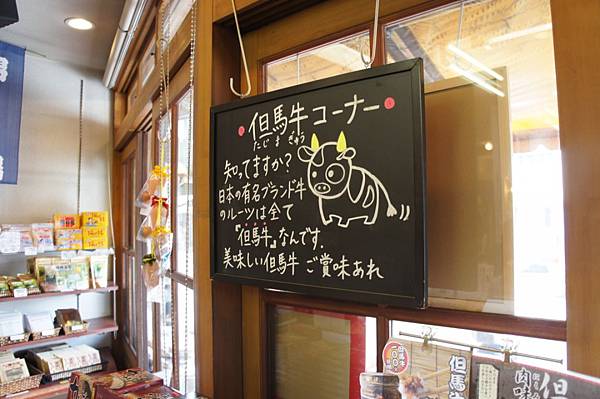 但馬牛コーナー
たじま ぎゅう
知ってますか?
日本の有名ブランド牛
のルーツは全て
『但馬牛』なんです.
美味しい但馬牛 ご賞味あれ
但馬
但
肉味